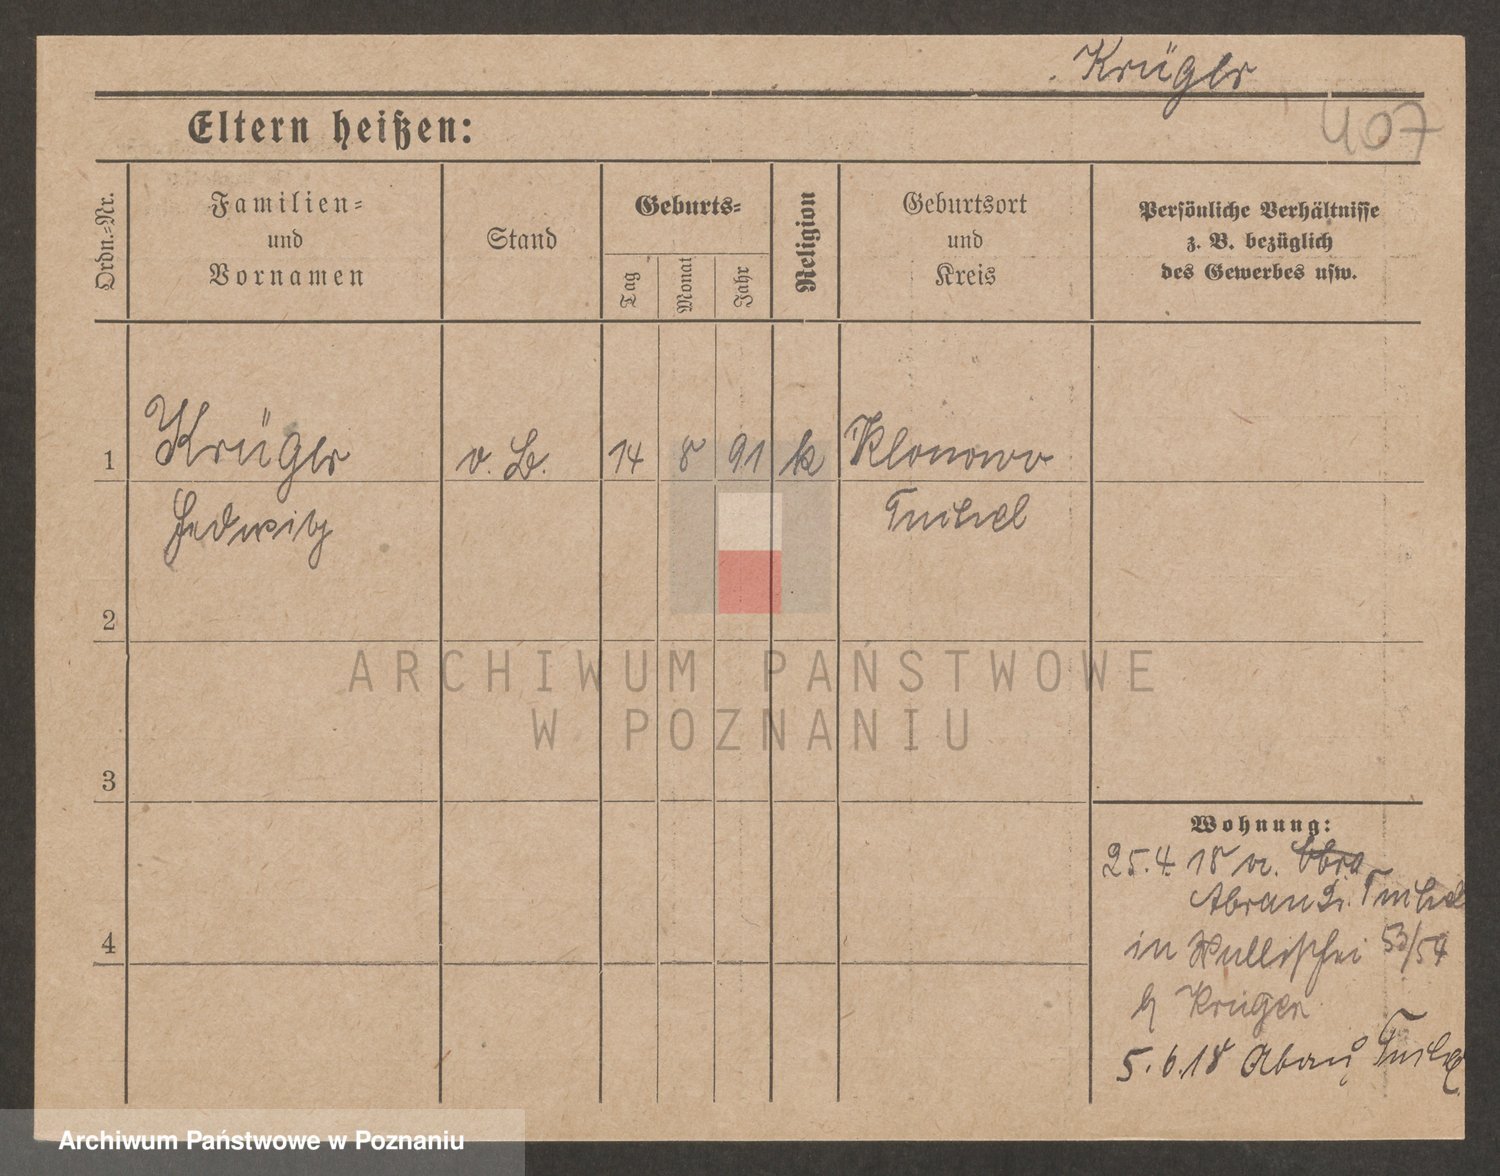 Krüger
407
Eltern heißen:
Ordn.-Nr.
Familien-
und
Vornamen
Stand
Geburts-
Tag
Monat
Jahr
Religion
Geburtsort
und
Kreis
Persönliche Verhältnisse
z. B. bezüglich
des Gewerbes usw.
1 Krüger o. B. 14 8 91 k Klonowo
Hedwig Tuchel
2
3
4
Wohnung:
25.4. 18 v.
Tuchel
in 53/54
b Krüger
5.6.18 Tuchel
ARCHIWUM PAŃSTWOWE
W POZNANIU
Archiwum Państwowe w Poznaniu